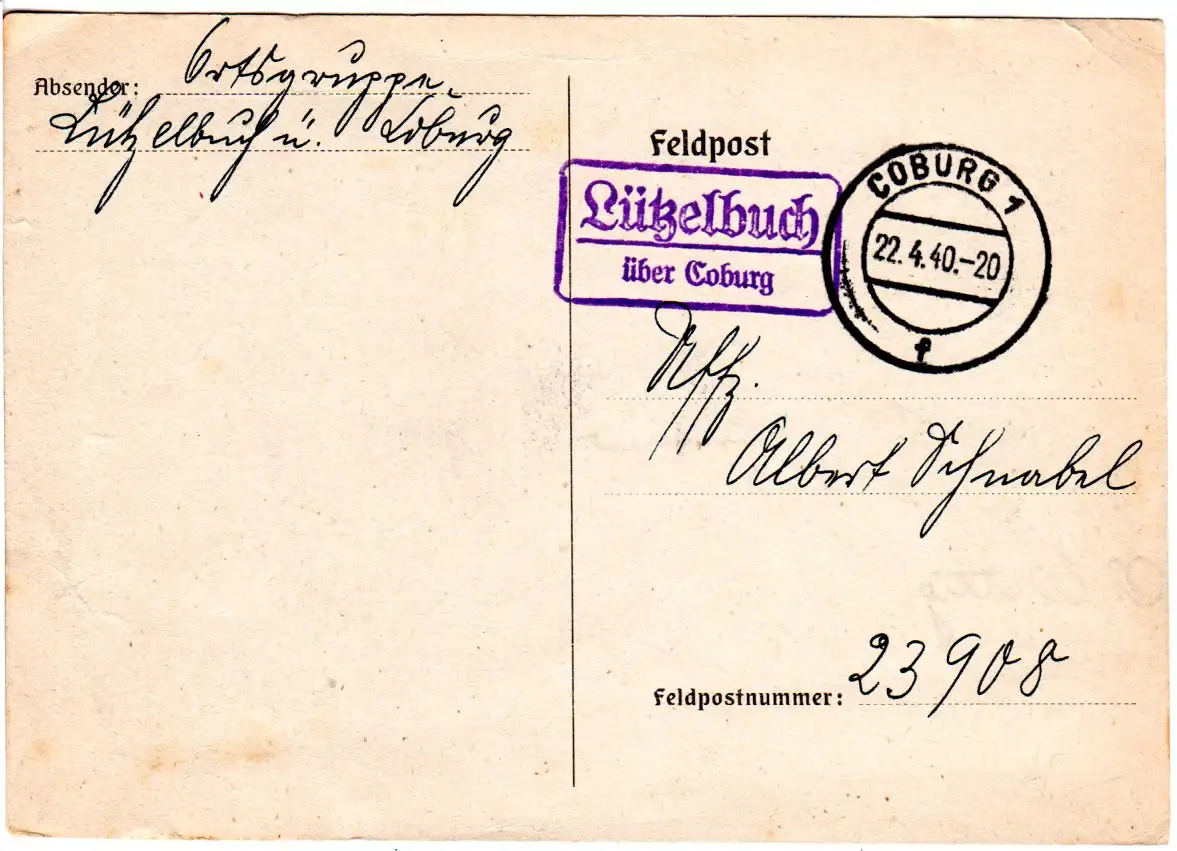 Absender: Ortsgruppe
Lützelbuch ü. Coburg
Feldpost
Lützelbuch
über Coburg
COBURG 1
22.4.40.-20
f
Uffz.
Albert Schnabel
Feldpostnummer: 23908